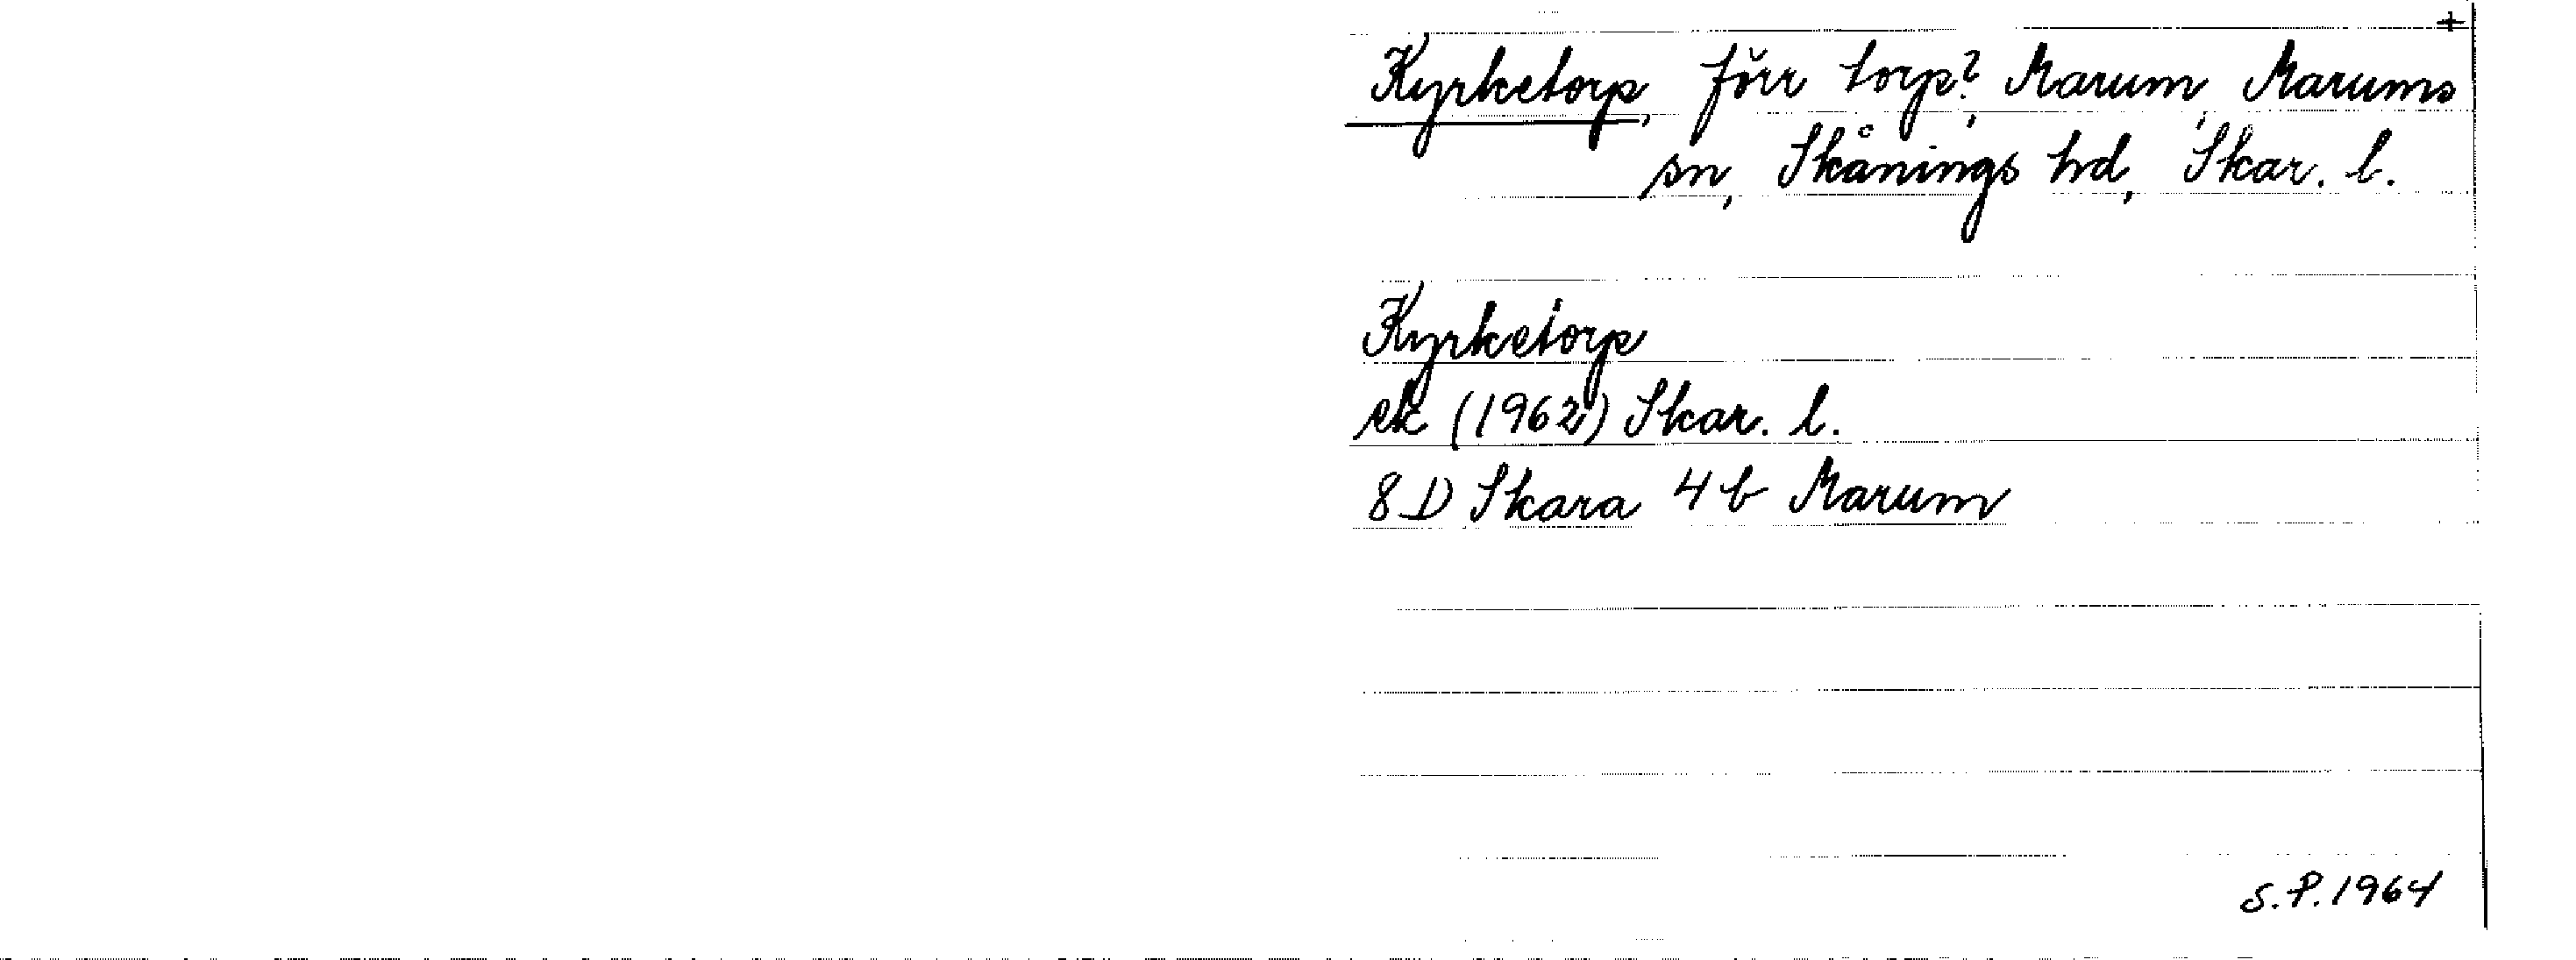 +
Kyrketorp, förr torp?, Marum, Marums
sn, Skånings hd, Skar. l.
Kyrketorp
ek (1962) Skar. l.
8D Skara 4b Marum
S.P. 1964